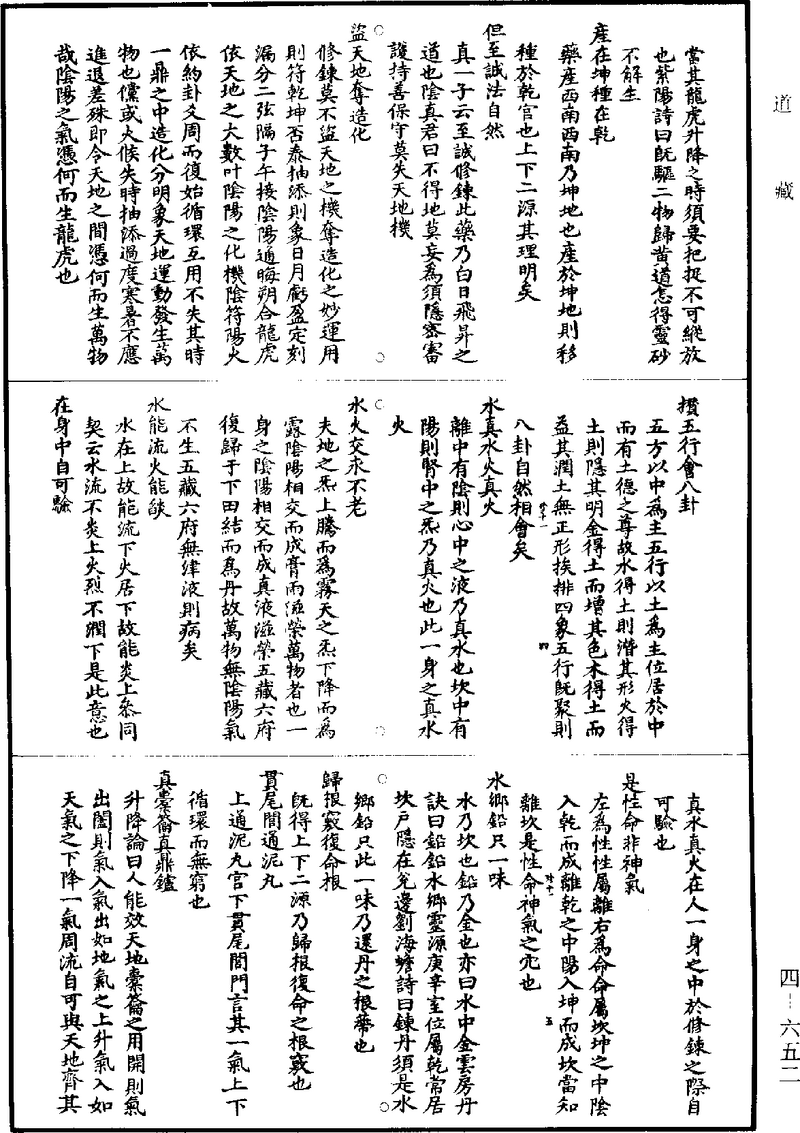 道藏
四—六五二
當其龍虎升降之時須要把捉不可縱放
也紫陽詩曰既驅二物歸黃道怎得靈砂
不解生
產在坤種在乾
藥產西南西南乃坤地也產於坤地則移
種於乾宮也上下二源其理明矣
但至誠法自然
真一子云至誠修鍊此藥乃白日飛昇之
道也陰真君曰不得地莫妄為須隱密審
護持善保守莫失天地機
盜天地奪造化
修鍊莫不盜天地之機奪造化之妙運用
則符乾坤否泰抽添則象日月虧盈定刻
漏分二弦隔子午接陰陽通晦朔合龍虎
依天地之大數叶陰陽之化機陰符陽火
依約卦爻周而復始循環互用不失其時
一鼎之中造化分明象天地運動發生萬
物也儻或火候失時抽添過度寒暑不應
進退差殊即令天地之間憑何而生萬物
哉陰陽之氣憑何而生龍虎也
攢五行會八卦
五方以中為主五行以土為主位居於中
而有土德之尊故水得土則潛其形火得
土則隱其明金得土而增其色木得土而
益其潤土無正形挨排四象五行既聚則
八卦自然相會矣
水真水火真火
離中有陰則心中之液乃真水也坎中有
陽則腎中之炁乃真火也此一身之真水
火
水火交永不老
夫地之炁上騰而為霧天之炁下降而為
露陰陽相交而成膏雨滋榮萬物者也一
身之陰陽相交而成真液滋榮五藏六府
復歸于下田結而為丹故萬物無陰陽氣
不生五藏六府無津液則病矣
水能流火能燄
水在上故能流下火居下故能炎上參同
契云水流不炎上火烈不潤下是此意也
在身中自可驗
真水真火在人一身之中於修鍊之際自
可驗也
是性命非神氣
左為性性屬離右為命命屬坎坤之中陰
入乾而成離乾之中陽入坤而成坎當知
離坎是性命神氣之穴也
水鄉鉛只一味
水乃坎也鉛乃金也亦曰水中金雲房丹
訣曰鉛鉛水鄉靈源庚辛室位屬乾常居
坎戶隱在兌邊劉海蟾詩曰鍊丹須是水
鄉鉛只此一味乃還丹之根蔕也
歸根竅復命根
既得上下二源乃歸根復命之根竅也
貫尾閭通泥丸
上通泥丸宮下貫尾閭門言其一氣上下
循環而無窮也
真橐籥真鼎鑪
升降論曰人能效天地橐籥之用開則氣
出闔則氣入氣出如地氣之上升氣入如
天氣之下降一氣周流自可與天地齊其